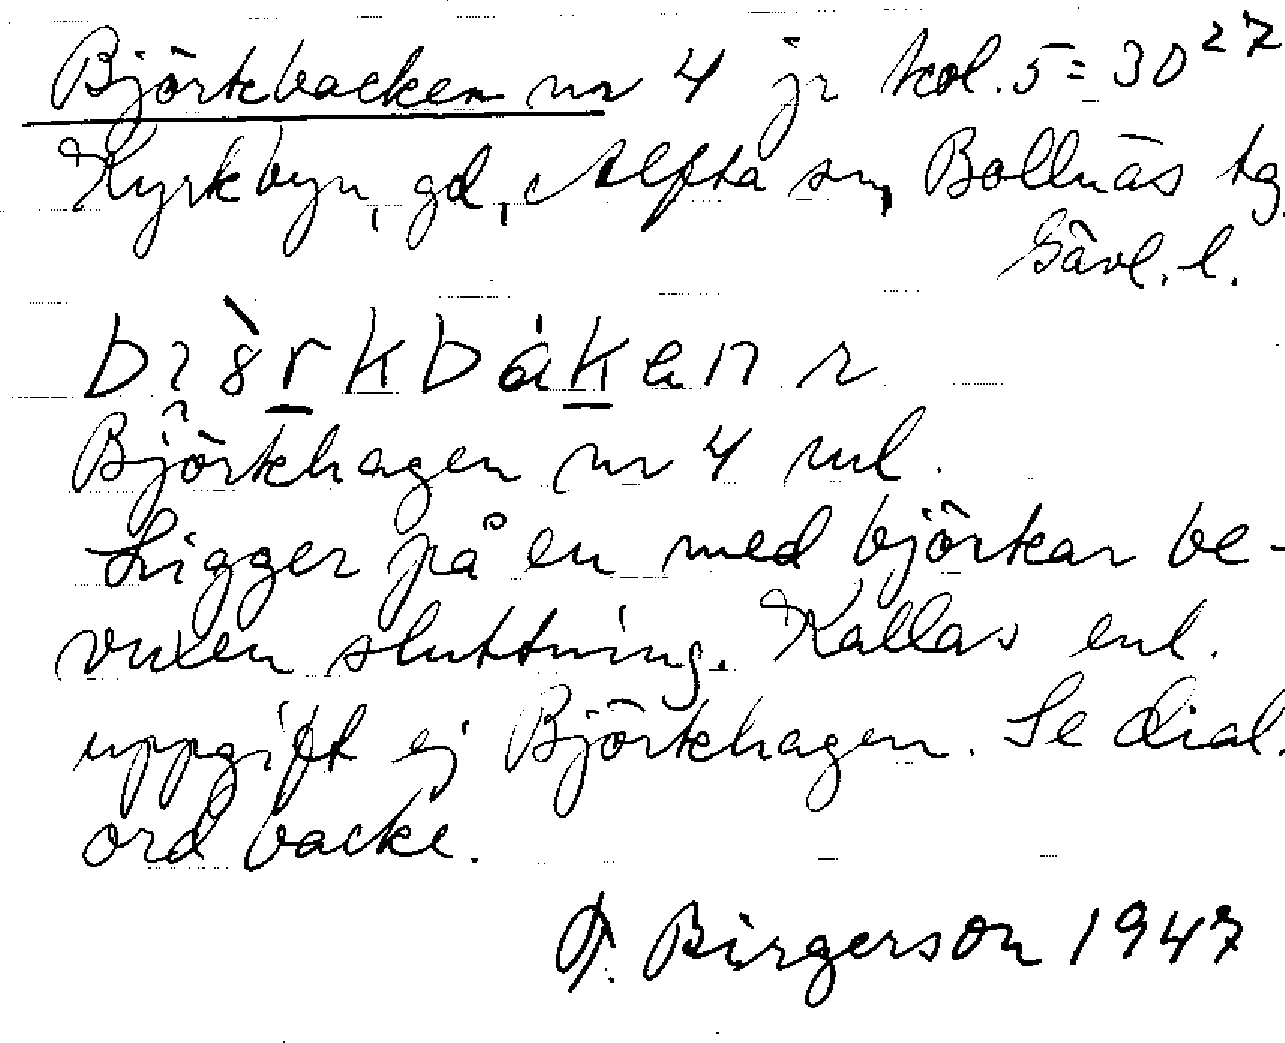 Björkbacken nr 4 jr kol. 5 = 30²⁷
Kyrkbyn, gd, Alfta sn, Bollnäs tg.
Gävl. l.
Björkhagen nr 4
Ligger på en med björkar be-
vuxen sluttning. Kallas enl.
uppgift ej Björkhagen. Se dial.
ord backe.
Birgerson 1947